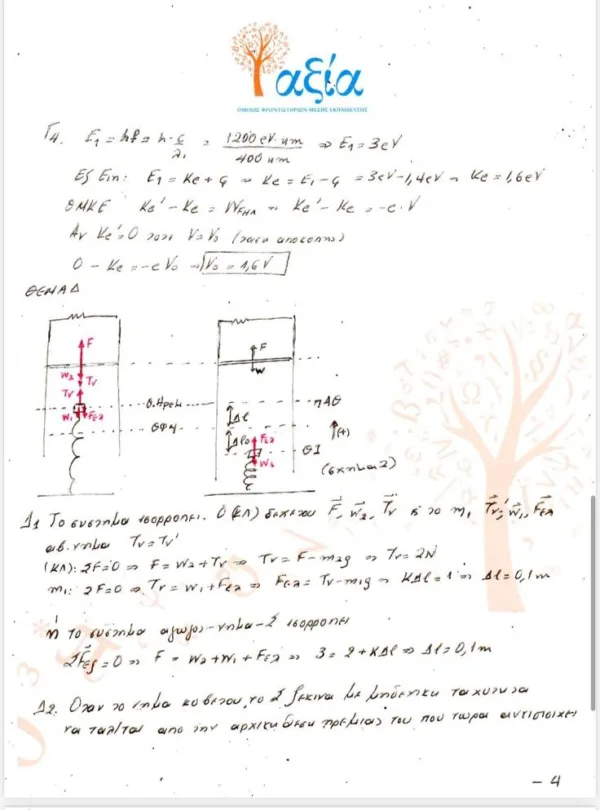 αξία
ΟΜΙΛΟΣ ΦΡΟΝΤΙΣΤΗΡΙΩΝ ΜΕΣΗΣ ΕΚΠΑΙΔΕΥΣΗΣ
Γ4. E₁ = hf = h · c/λ₁ = 1200 eV·nm / 400 nm ⇒ E₁ = 3eV
Εξ Ein: E₁ = Ke + φ ⇒ Ke = E₁ - φ = 3eV - 1,4eV ⇒ Ke = 1,6eV
ΘΜΚΕ Ke' - Ke = W_FΗΛ ⇒ Ke' - Ke = -e · V
Αν Ke' = 0 τότε V = V₀ (τάση αποκοπής)
0 - Ke = -e V₀ ⇒ V₀ = 1,6 V
ΘΕΜΑ Δ
F F
W₂ Tν W
Tν Θ.Ηρεμ ΠΑΘ
W₁ Fελ Δl
ΘΦΜ Δl₀ Fελ (+)
W₁ ΘΙ
(σχήμα 2)
Δ1 Το σύστημα ισορροπεί. Ο (ΚΛ) δέχεται F, W₂, Tν & το m₁ Tν', W₁, Fελ
αβ. νήμα Tν = Tν'
(ΚΛ): ΣF = 0 ⇒ F = W₂ + Tν ⇒ Tν = F - m₂g ⇒ Tν = 2N
m₁: ΣF = 0 ⇒ Tν = W₁ + Fελ ⇒ Fελ = Tν - m₁g ⇒ KΔl = 1 ⇒ Δl = 0,1m
ή Το σύστημα αγωγος-νημα-Σ ισορροπει
ΣFεξ = 0 ⇒ F = W₂ + W₁ + Fελ ⇒ 3 = 2 + KΔl ⇒ Δl = 0,1m
Δ2. Όταν το νήμα κοβεται, το Σ ξεκινα με μηδενικη ταχυτητα
να ταλ/ται από την αρχικη θεση ηρεμιας του που τωρα αντιστοιχει
- 4